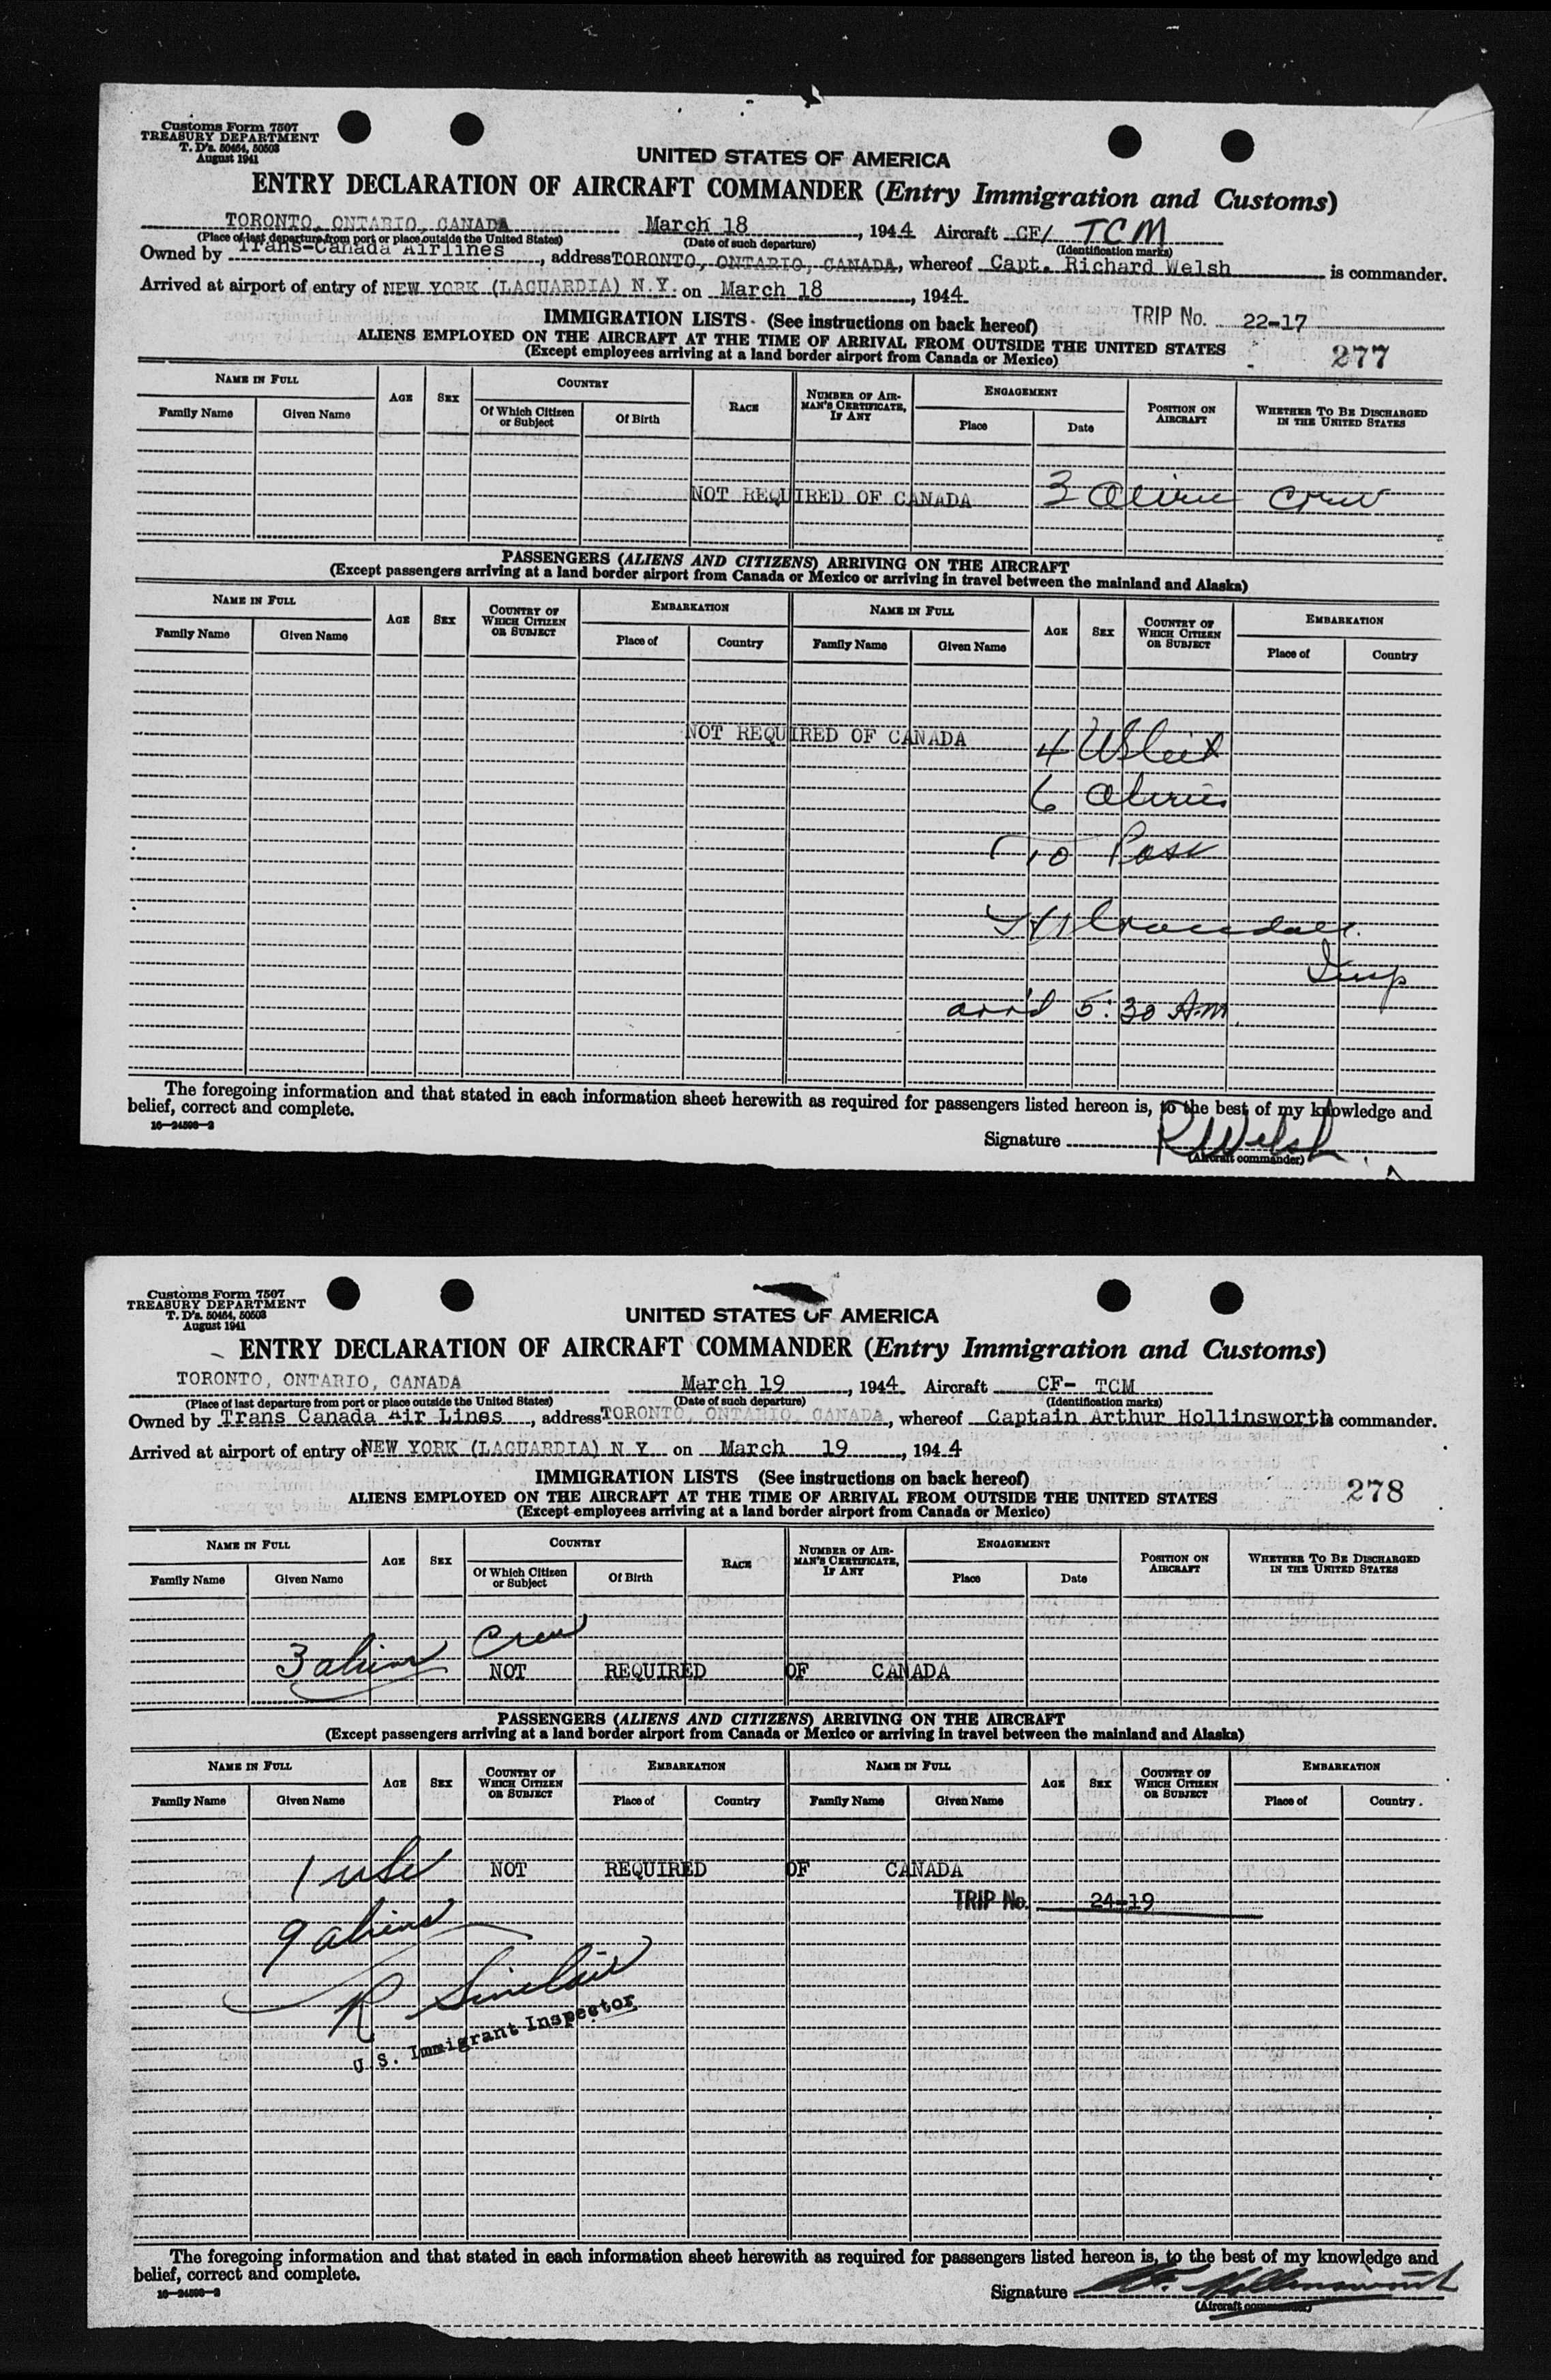 Customs Form 7507
TREASURY DEPARTMENT
T. D's. 50464, 50503
August 1941
UNITED STATES OF AMERICA
ENTRY DECLARATION OF AIRCRAFT COMMANDER (Entry Immigration and Customs)
TORONTO, ONTARIO, CANADA March 18, 1944 Aircraft CF/ TCM
(Place of last departure from port or place outside the United States) (Date of such departure) (Identification marks)
Owned by Trans-Canada Airlines, address TORONTO, ONTARIO, CANADA, whereof Capt. Richard Welsh is commander.
Arrived at airport of entry of NEW YORK (LAGUARDIA) N.Y. on March 18, 1944.
IMMIGRATION LISTS. (See instructions on back hereof) TRIP No. 22-17
ALIENS EMPLOYED ON THE AIRCRAFT AT THE TIME OF ARRIVAL FROM OUTSIDE THE UNITED STATES
(Except employees arriving at a land border airport from Canada or Mexico) 277
NAME IN FULL AGE SEX COUNTRY RACE NUMBER OF AIRMAN'S CERTIFICATE, IF ANY ENGAGEMENT POSITION ON AIRCRAFT WHETHER TO BE DISCHARGED IN THE UNITED STATES
Family Name Given Name Of Which Citizen or Subject Of Birth Place Date
NOT REQUIRED OF CANADA 3 alien crew
PASSENGERS (ALIENS AND CITIZENS) ARRIVING ON THE AIRCRAFT
(Except passengers arriving at a land border airport from Canada or Mexico or arriving in travel between the mainland and Alaska)
NAME IN FULL AGE SEX COUNTRY OF WHICH CITIZEN OR SUBJECT EMBARKATION NAME IN FULL AGE SEX COUNTRY OF WHICH CITIZEN OR SUBJECT EMBARKATION
Family Name Given Name Place of Country Family Name Given Name Place of Country
NOT REQUIRED OF CANADA 4 US Cit
6 aliens
10 Pass
Insp
arr'd 5:30 A.M.
The foregoing information and that stated in each information sheet herewith as required for passengers listed hereon is, to the best of my knowledge and
belief, correct and complete.
16—24598-2
Signature R Welsh
(Aircraft commander)
Customs Form 7507
TREASURY DEPARTMENT
T. D's. 50464, 50503
August 1941
UNITED STATES OF AMERICA
ENTRY DECLARATION OF AIRCRAFT COMMANDER (Entry Immigration and Customs)
TORONTO, ONTARIO, CANADA March 19, 1944 Aircraft CF- TCM
(Place of last departure from port or place outside the United States) (Date of such departure) (Identification marks)
Owned by Trans Canada Air Lines, address TORONTO, ONTARIO, CANADA, whereof Captain Arthur Hollinsworth is commander.
Arrived at airport of entry of NEW YORK (LAGUARDIA) N Y on March 19, 1944
IMMIGRATION LISTS (See instructions on back hereof) 278
ALIENS EMPLOYED ON THE AIRCRAFT AT THE TIME OF ARRIVAL FROM OUTSIDE THE UNITED STATES
(Except employees arriving at a land border airport from Canada or Mexico)
NAME IN FULL AGE SEX COUNTRY RACE NUMBER OF AIRMAN'S CERTIFICATE, IF ANY ENGAGEMENT POSITION ON AIRCRAFT WHETHER TO BE DISCHARGED IN THE UNITED STATES
Family Name Given Name Of Which Citizen or Subject Of Birth Place Date
3 alien Crew
NOT REQUIRED OF CANADA
PASSENGERS (ALIENS AND CITIZENS) ARRIVING ON THE AIRCRAFT
(Except passengers arriving at a land border airport from Canada or Mexico or arriving in travel between the mainland and Alaska)
NAME IN FULL AGE SEX COUNTRY OF WHICH CITIZEN OR SUBJECT EMBARKATION NAME IN FULL AGE SEX COUNTRY OF WHICH CITIZEN OR SUBJECT EMBARKATION
Family Name Given Name Place of Country Family Name Given Name Place of Country
1 NOT REQUIRED OF CANADA
TRIP No. 24-19
9 aliens
R Sinclair
U.S. Immigrant Inspector
The foregoing information and that stated in each information sheet herewith as required for passengers listed hereon is, to the best of my knowledge and
belief, correct and complete.
16—24598-2
Signature Hollinsworth
(Aircraft commander)